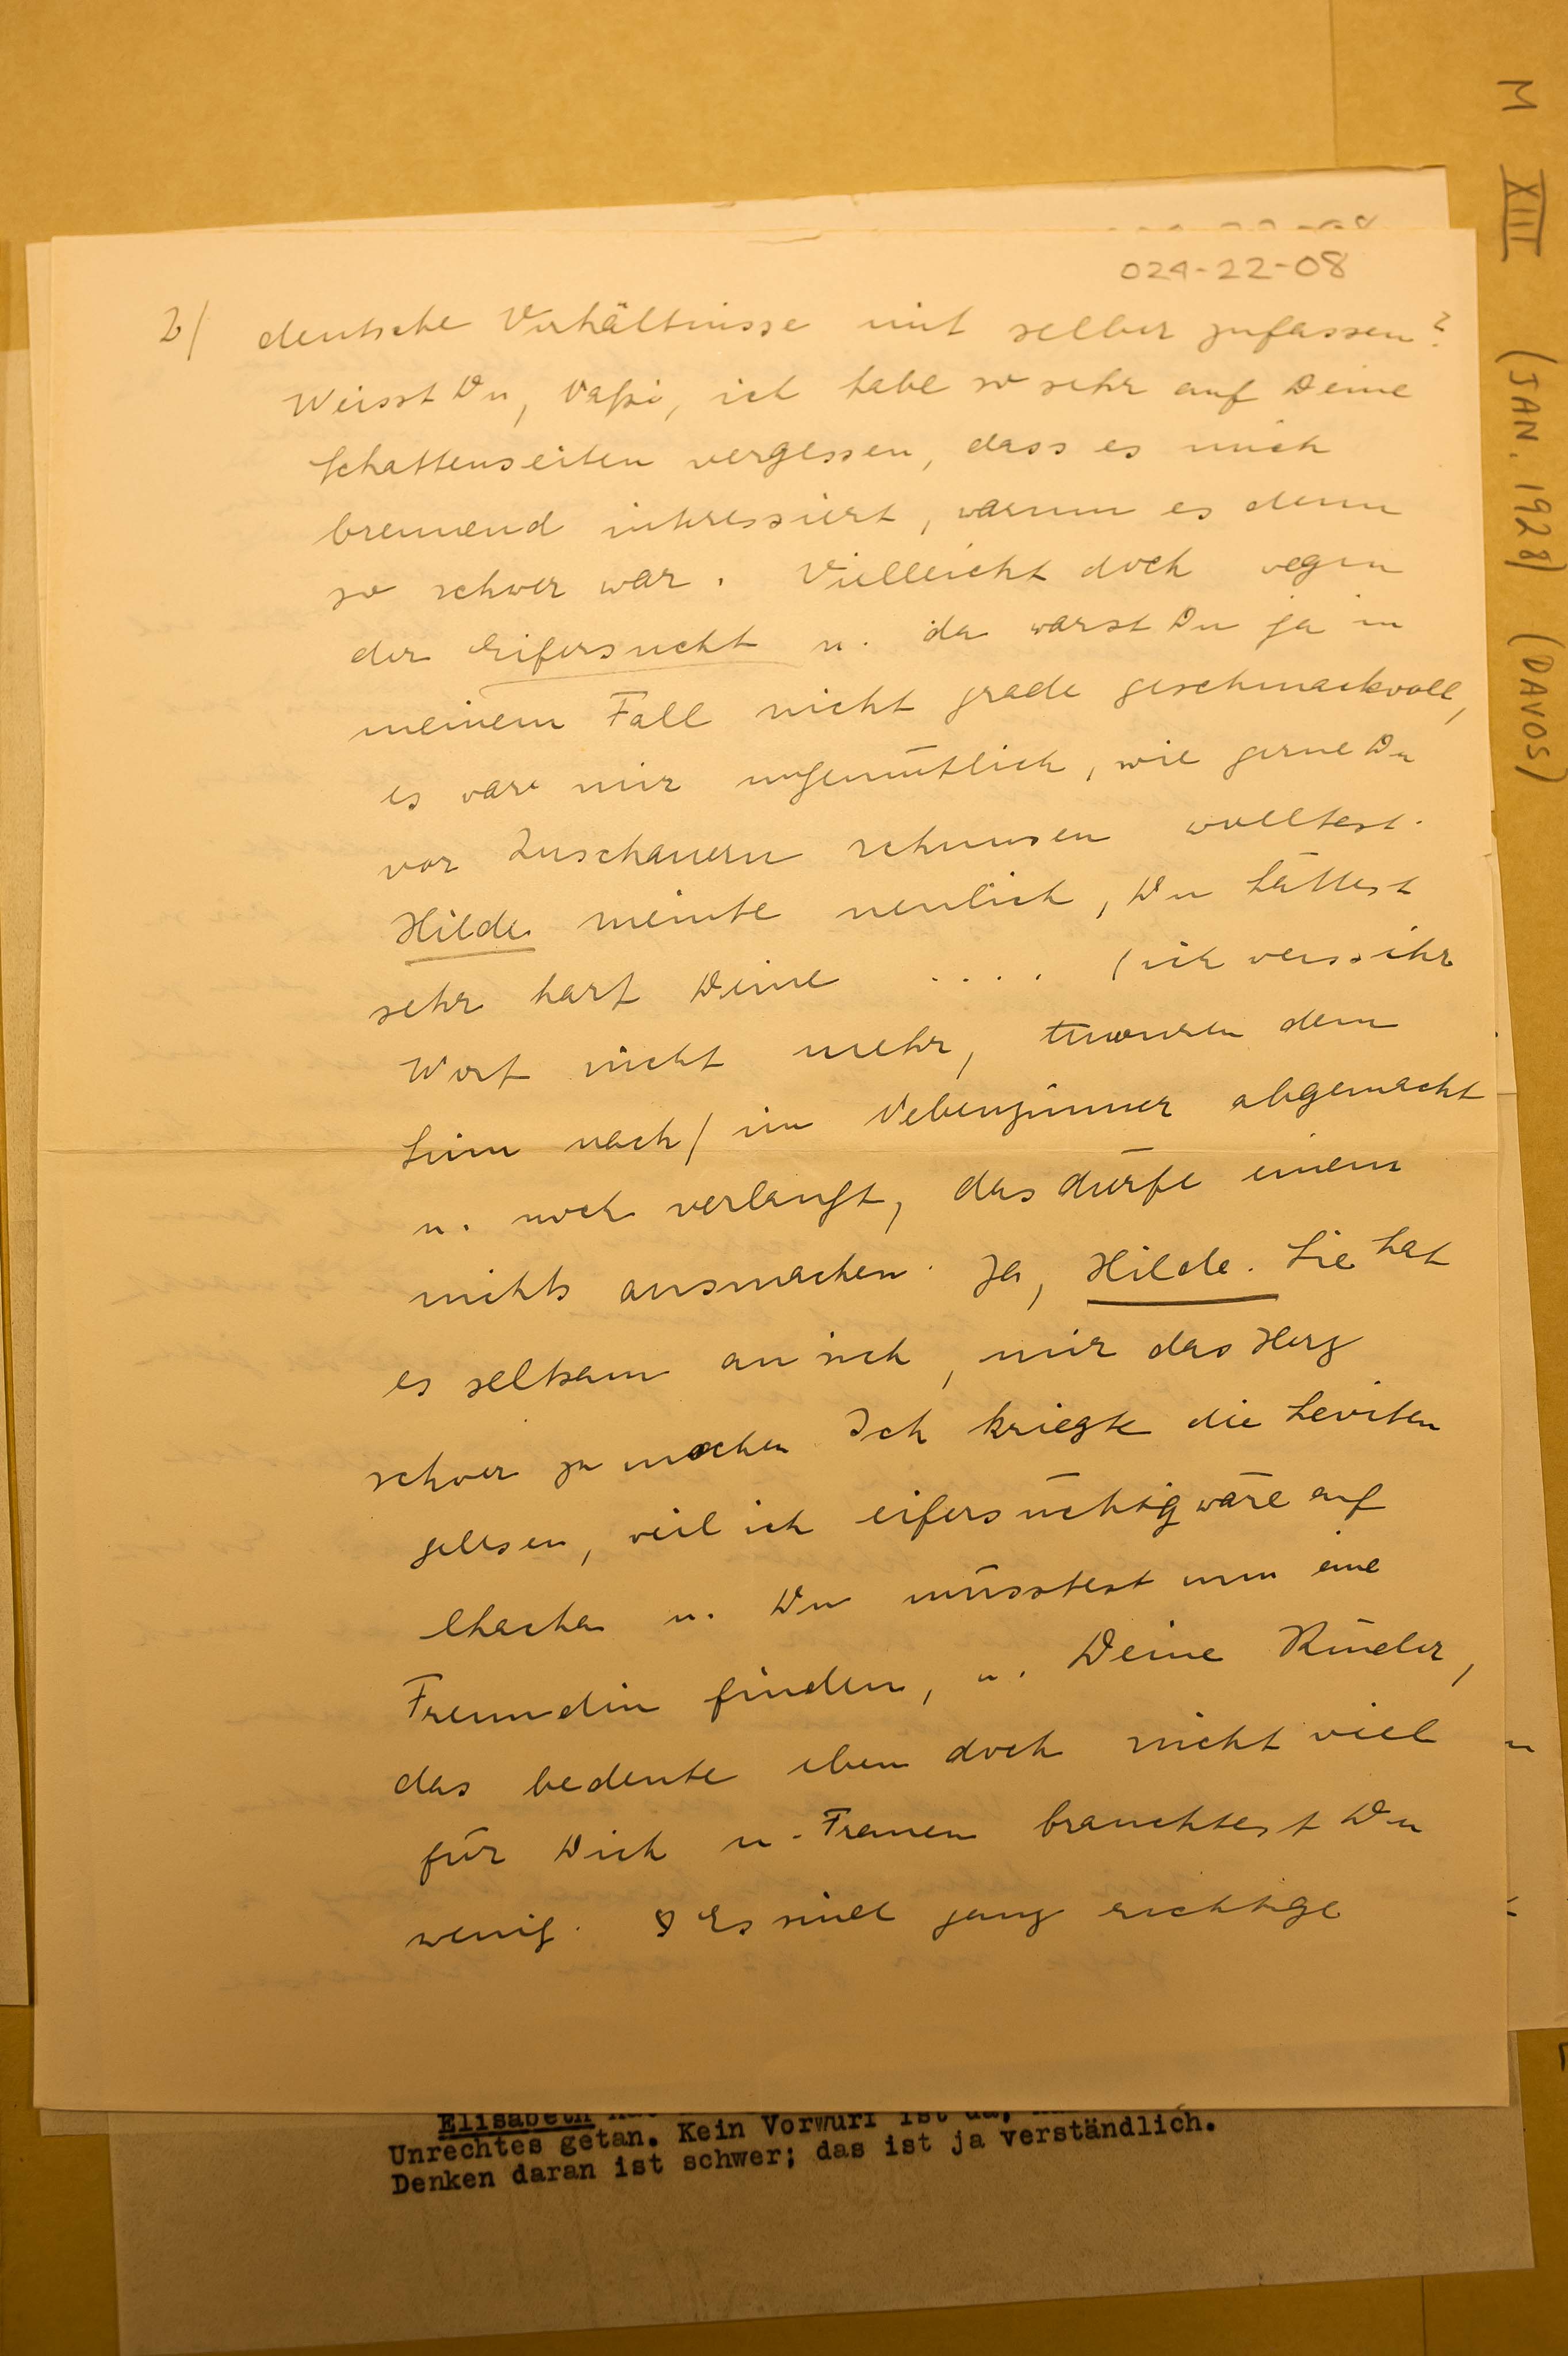 M XIII (JAN. 1928) (DAVOS)
024-22-08
2/ deutsche Verhältnisse mit selber zufassen?
Weisst Du, ich habe so sehr auf Deine
Schattenseiten vergessen, dass es mich
brennend interessiert, warum es denn
so schwer war. Vielleicht doch wegen
der Eifersucht u. da warst Du ja in
meinem Fall nicht grade geschmackvoll,
es war mir ungemütlich, wie gerne Du
vor Zuschauern schmusen wolltest.
Hilde meinte neulich, Du hättest
sehr hart Deine .... (ich weiss ihr
Wort nicht mehr, dem
Sinn nach) im Nebenzimmer abgemacht
u. noch verlangt, das dürfe einem
nichts ausmachen. Ja, Hilde. Sie hat
es seltsam an sich, mir das Herz
schwer zu machen Ich kriegte die Leviten
gelesen, weil ich eifersüchtig wäre auf
Chacha u. Du müsstest nun eine
Freundin finden, u. Deine Kinder,
das bedeute eben doch nicht viel
für Dich u. Frauen brauchtest Du
wenig. Es sind ganz richtige
Elisabeth
Unrechtes getan. Kein Vorwurf ist da,
Denken daran ist schwer; das ist ja verständlich.